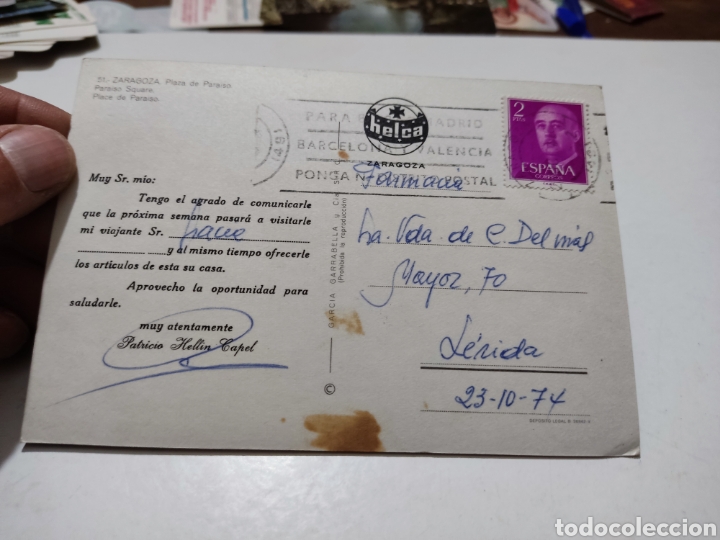 51.- ZARAGOZA. Plaza de Paraiso.
Paraiso Square.
Place de Paraiso.
PARA MADRID
BARCELONA Y VALENCIA
PONGA POSTAL
helca
ZARAGOZA
2
PTAS
ESPAÑA
CORREOS
Muy Sr. mío:
Tengo el agrado de comunicarle
que la próxima semana pasará a visitarle
mi viajante Sr.
y al mismo tiempo ofrecerle
los artículos de esta su casa.
Aprovecho la oportunidad para
saludarle.
muy atentamente
Patricio Hellín Capel
GARCIA GARRABELLA y Cía.
(Prohibida la reproducción)
©
Farmacia
La. Vda. de C. Delmás
Mayor, 70
Lérida
23-10-74
DEPOSITO LEGAL B.
todocoleccion